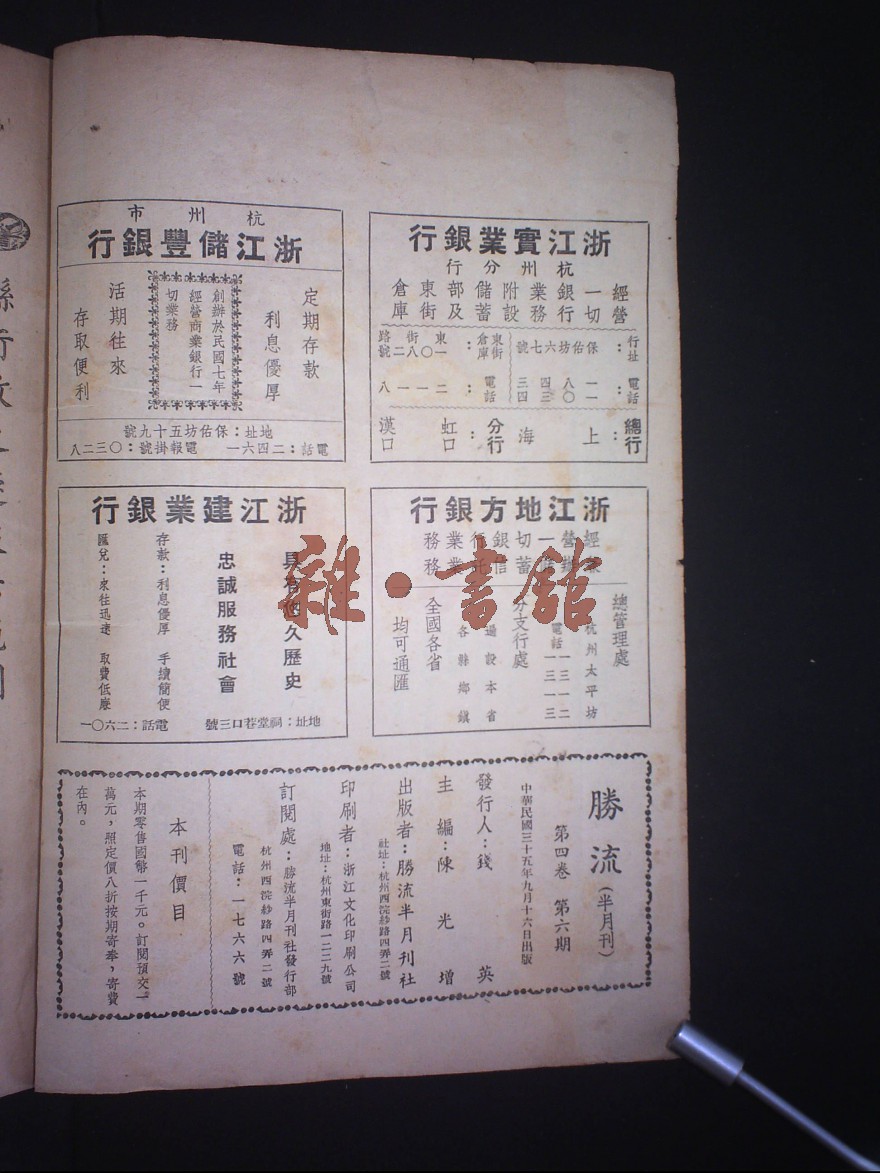 浙江實業銀行
杭州分行
經營
一切
銀行
業務
附設
儲蓄
部及
東街
倉庫
行址：保佑坊六七號
東街倉庫：東街路一〇八二號
電話：
電話：二一一八
總行：上海
分行：虹口
漢口
杭州市
浙江儲豐銀行
定期存款
利息優厚
創辦於民國七年
經營商業銀行一
切業務
活期往來
存取便利
地址：保佑坊五十九號
電話：二四六一 電報掛號：〇三二八
浙江地方銀行
經營一切銀行業務
儲蓄信託業務
總管理處
杭州太平坊
電話
一三一二
一三一三
分支行處
遍設本省
各縣鄉鎮
全國各省
均可通匯
浙江建業銀行
具有悠久歷史
忠誠服務社會
存款：利息優厚 手續簡便
匯兌：來往迅速 取費低廉
地址：祠堂巷口三號 電話：二六〇一
勝流（半月刊）
第四卷 第六期
中華民國三十五年九月十六日出版
發行人：錢英
主編：陳光增
出版者：勝流半月刊社
社址：杭州西浣紗路四弄二號
印刷者：浙江文化印刷公司
地址：杭州東街路一二二九號
訂閱處：勝流半月刊社發行部
杭州西浣紗路四弄二號
電話：一七六六號
本刊價目
本期零售國幣一千元。訂閱預交一
萬元，照定價八折按期寄奉，寄費
在內。
雜·書館